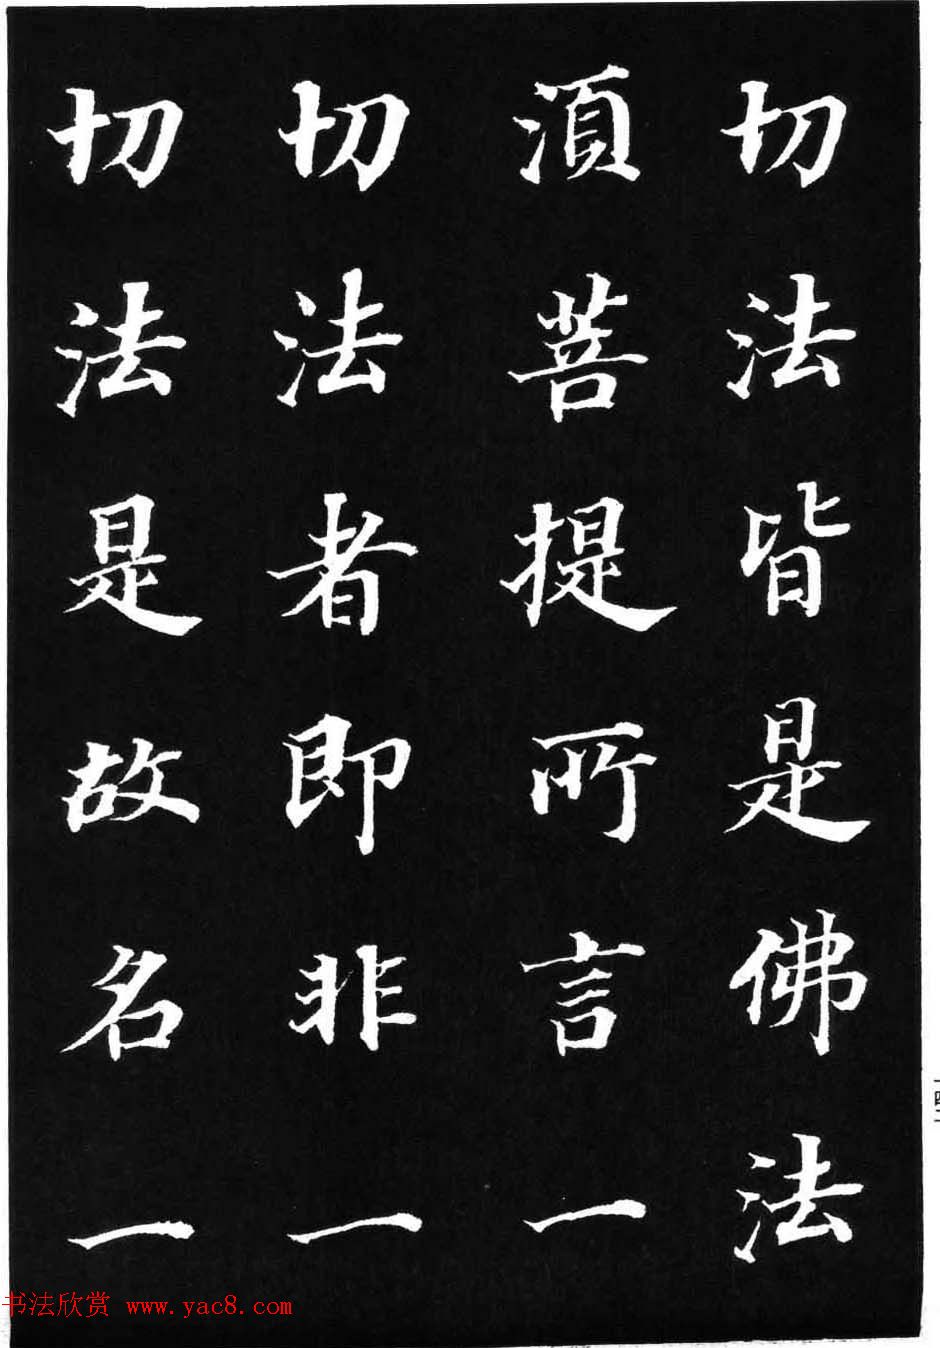 切法皆是佛法
湏菩提所言一
切法者即非一
切法是故名一
书法欣赏 www.yac8.com